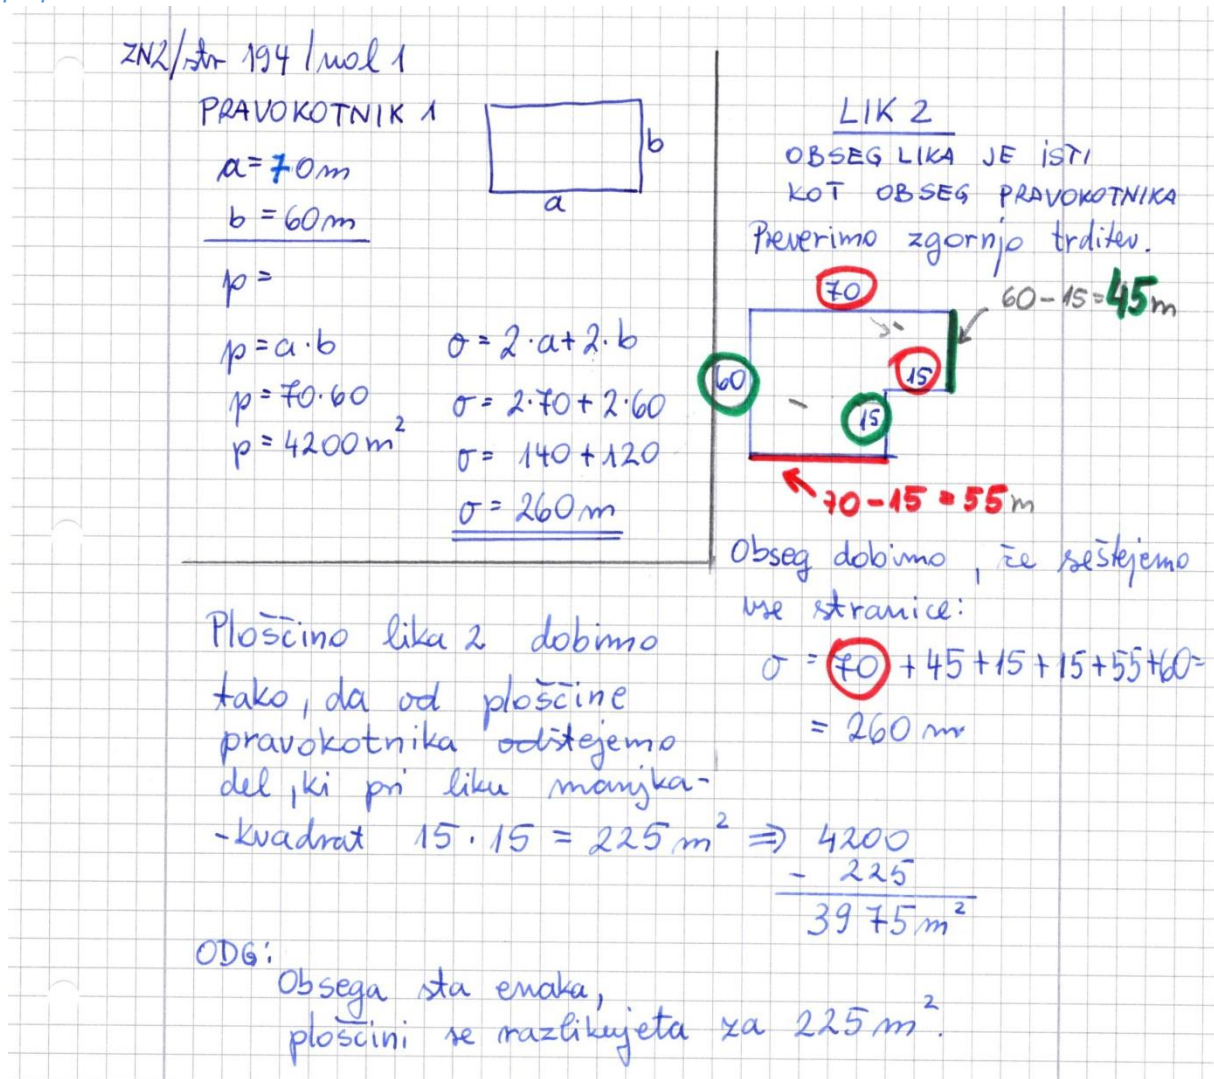 ZN2/str 194/nal 1
PRAVOKOTNIK 1
a=70m
b=60m
p=
p=a·b
p=70·60
p=4200m²
b
a
σ=2·a+2·b
σ=2·70+2·60
σ=140+120
σ=260m
LIK 2
OBSEG LIKA JE ISTI
KOT OBSEG PRAVOKOTNIKA
Preverimo zgornjo trditev.
70
60-15=45m
60
15
15
70-15=55m
Obseg dobimo, če seštejemo
vse stranice:
σ=70+45+15+15+55+60=
=260m
Ploščino lika 2 dobimo
tako, da od ploščine
pravokotnika odštejemo
del, ki pri liku manjka-
-kvadrat 15·15=225m² ⇒ 4200
- 225
3975m²
ODG:
Obsega sta enaka,
ploščini se razlikujeta za 225m².